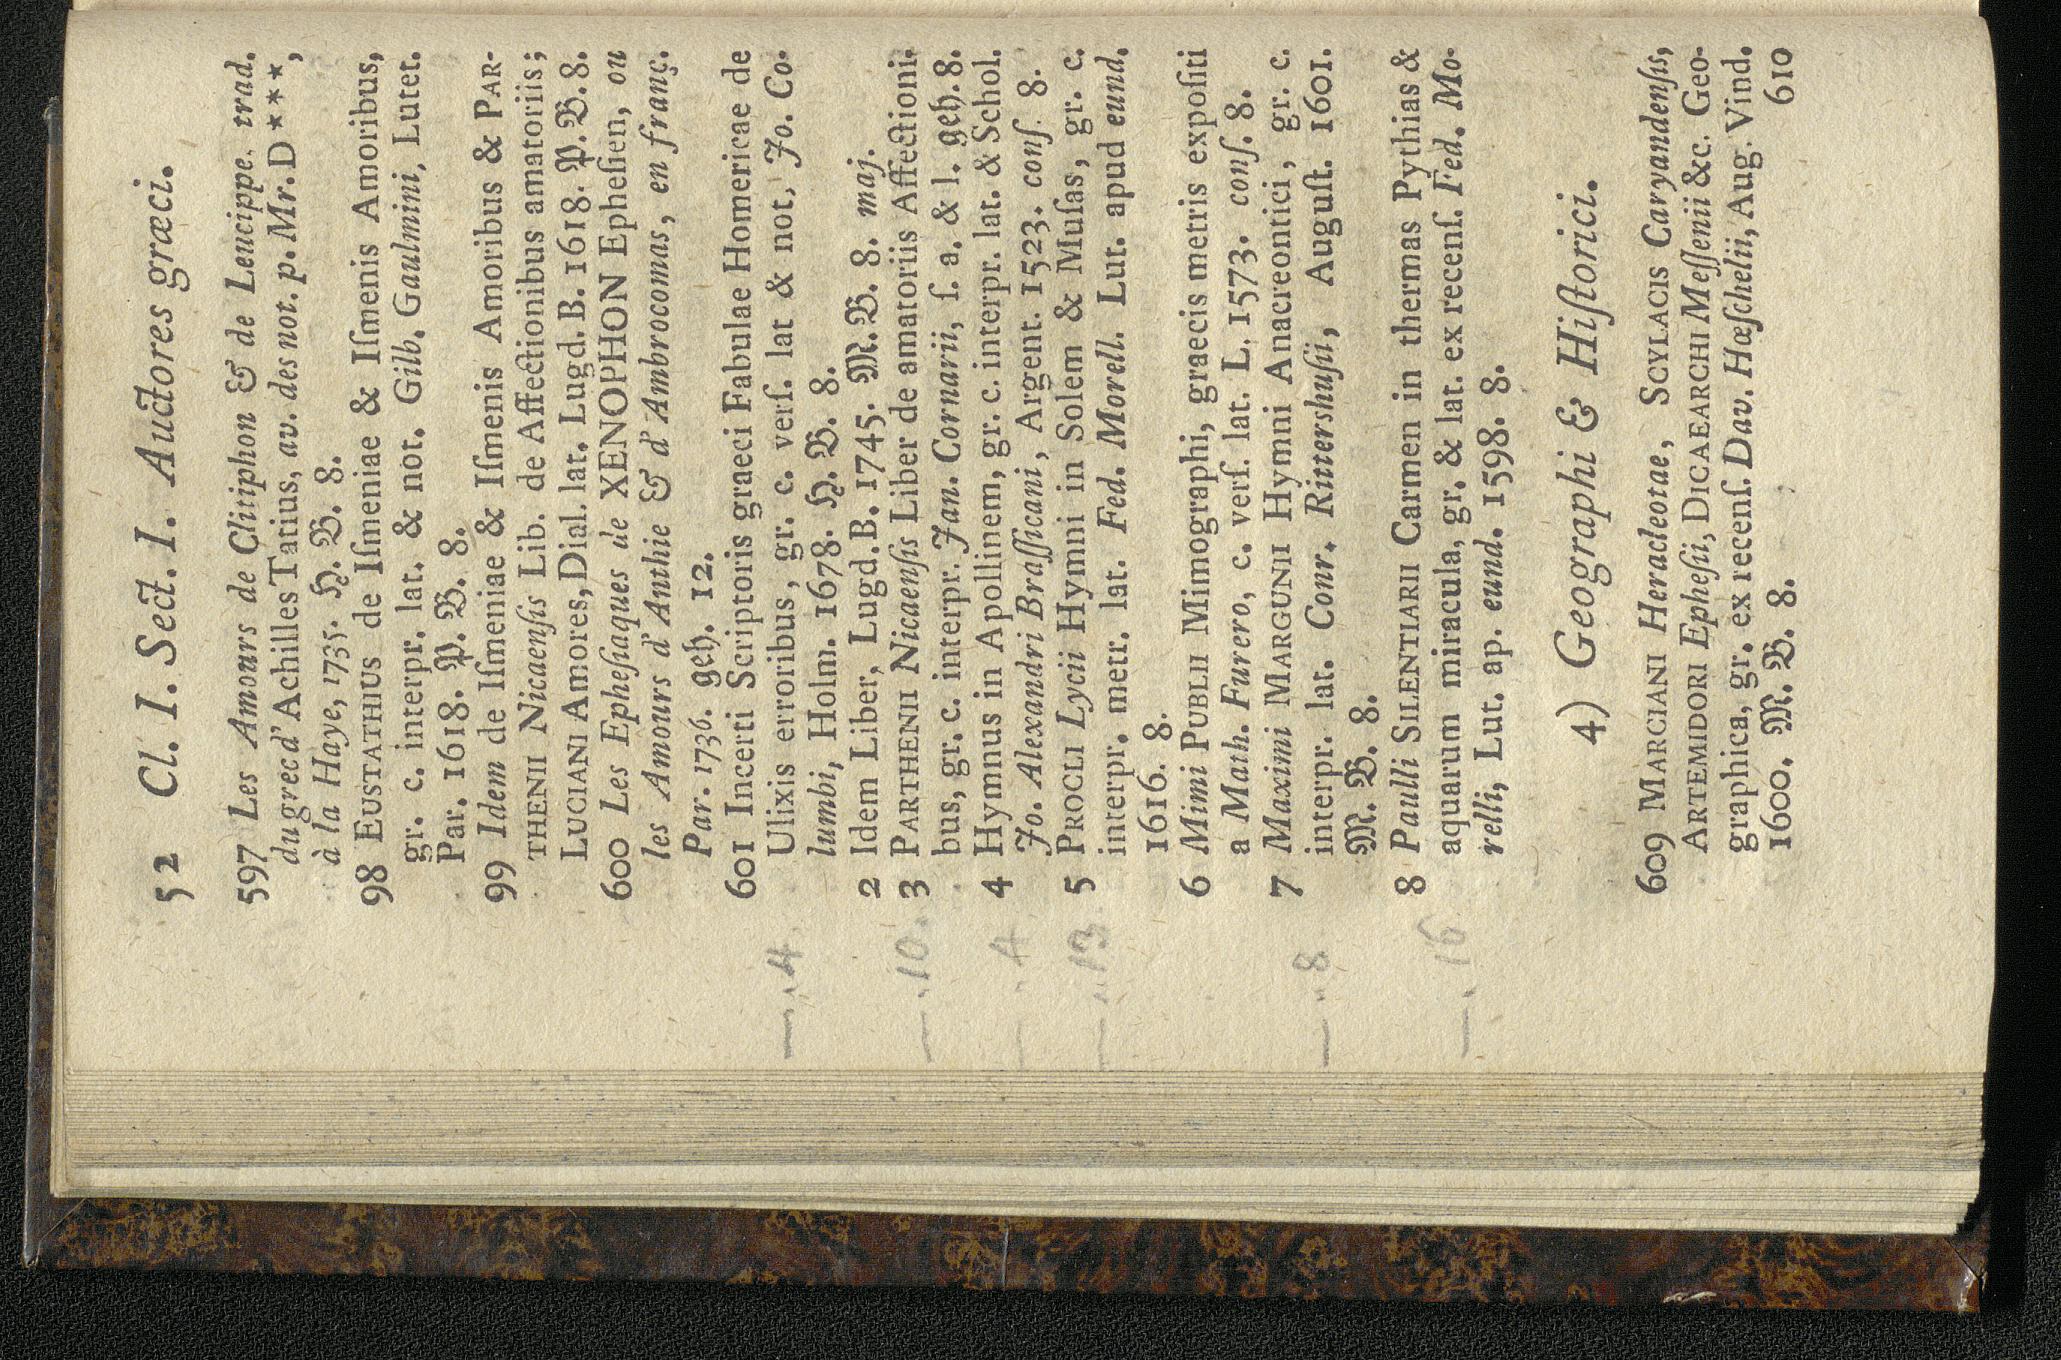 52 Cl. I. Sect. I. Auctores græci.
597 Les Amours de Clitiphon & de Leucippe, trad.
du grec d'Achilles Tatius, av. des not. p. Mr. D***,
à la Haye, 1735. H. B. 8.
98 EUSTATHIUS de Iſmeniae & Iſmenis Amoribus,
gr. c. interpr. lat. & not. Gilb. Gaulmini, Lutet.
Par. 1618. P. B. 8.
99 Idem de Iſmeniae & Iſmenis Amoribus & PAR-
THENII Nicaenſis Lib. de Affectionibus amatoriis;
LUCIANI Amores, Dial. lat. Lugd. B. 1618. P. B. 8.
600 Les Epheſiaques de XENOPHON Epheſien, ou
les Amours d'Anthie & d'Ambrocomas, en franç.
Par. 1736. geh. 12.
601 Incerti Scriptoris graeci Fabulae Homericae de
Ulixis erroribus, gr. c. verſ. lat & not, Jo. Co-
lumbi, Holm. 1678. H. B. 8.
—. 4
2 Idem Liber, Lugd. B. 1745. M. B. 8. maj.
3 PARTHENII Nicaenſis Liber de amatoriis Affectioni-
bus, gr. c. interpr. Jan. Cornarii, ſ. a. & l. geh. 8.
—. 10.
4 Hymnus in Apollinem, gr. c. interpr. lat. & Schol.
Jo. Alexandri Braſſicani, Argent. 1523. conſ. 8.
—. 4
5 PROCLI Lycii Hymni in Solem & Muſas, gr. c.
interpr. metr. lat. Fed. Morell. Lut. apud eund.
1616. 8.
—. 13
6 Mimi PUBLII Mimographi, graecis metris expoſiti
a Math. Furero, c. verſ. lat. L. 1573. conſ. 8.
7 Maximi MARGUNII Hymni Anacreontici, gr. c.
interpr. lat. Conr. Rittershuſii, Auguſt. 1601.
M. B. 8.
—. 8
8 Paulli SILENTIARII Carmen in thermas Pythias &
aquarum miracula, gr. & lat. ex recenſ. Fed. Mo-
relli, Lut. ap. eund. 1598. 8.
—. 16
4) Geographi & Hiſtorici.
609 MARCIANI Heracleotae, SCYLACIS Caryandenſis,
ARTEMIDORI Epheſii, DICAEARCHI Meſſenii &c. Geo-
graphica, gr. ex recenſ. Dav. Hœſchelii, Aug. Vind.
1600. M. B. 8.
610